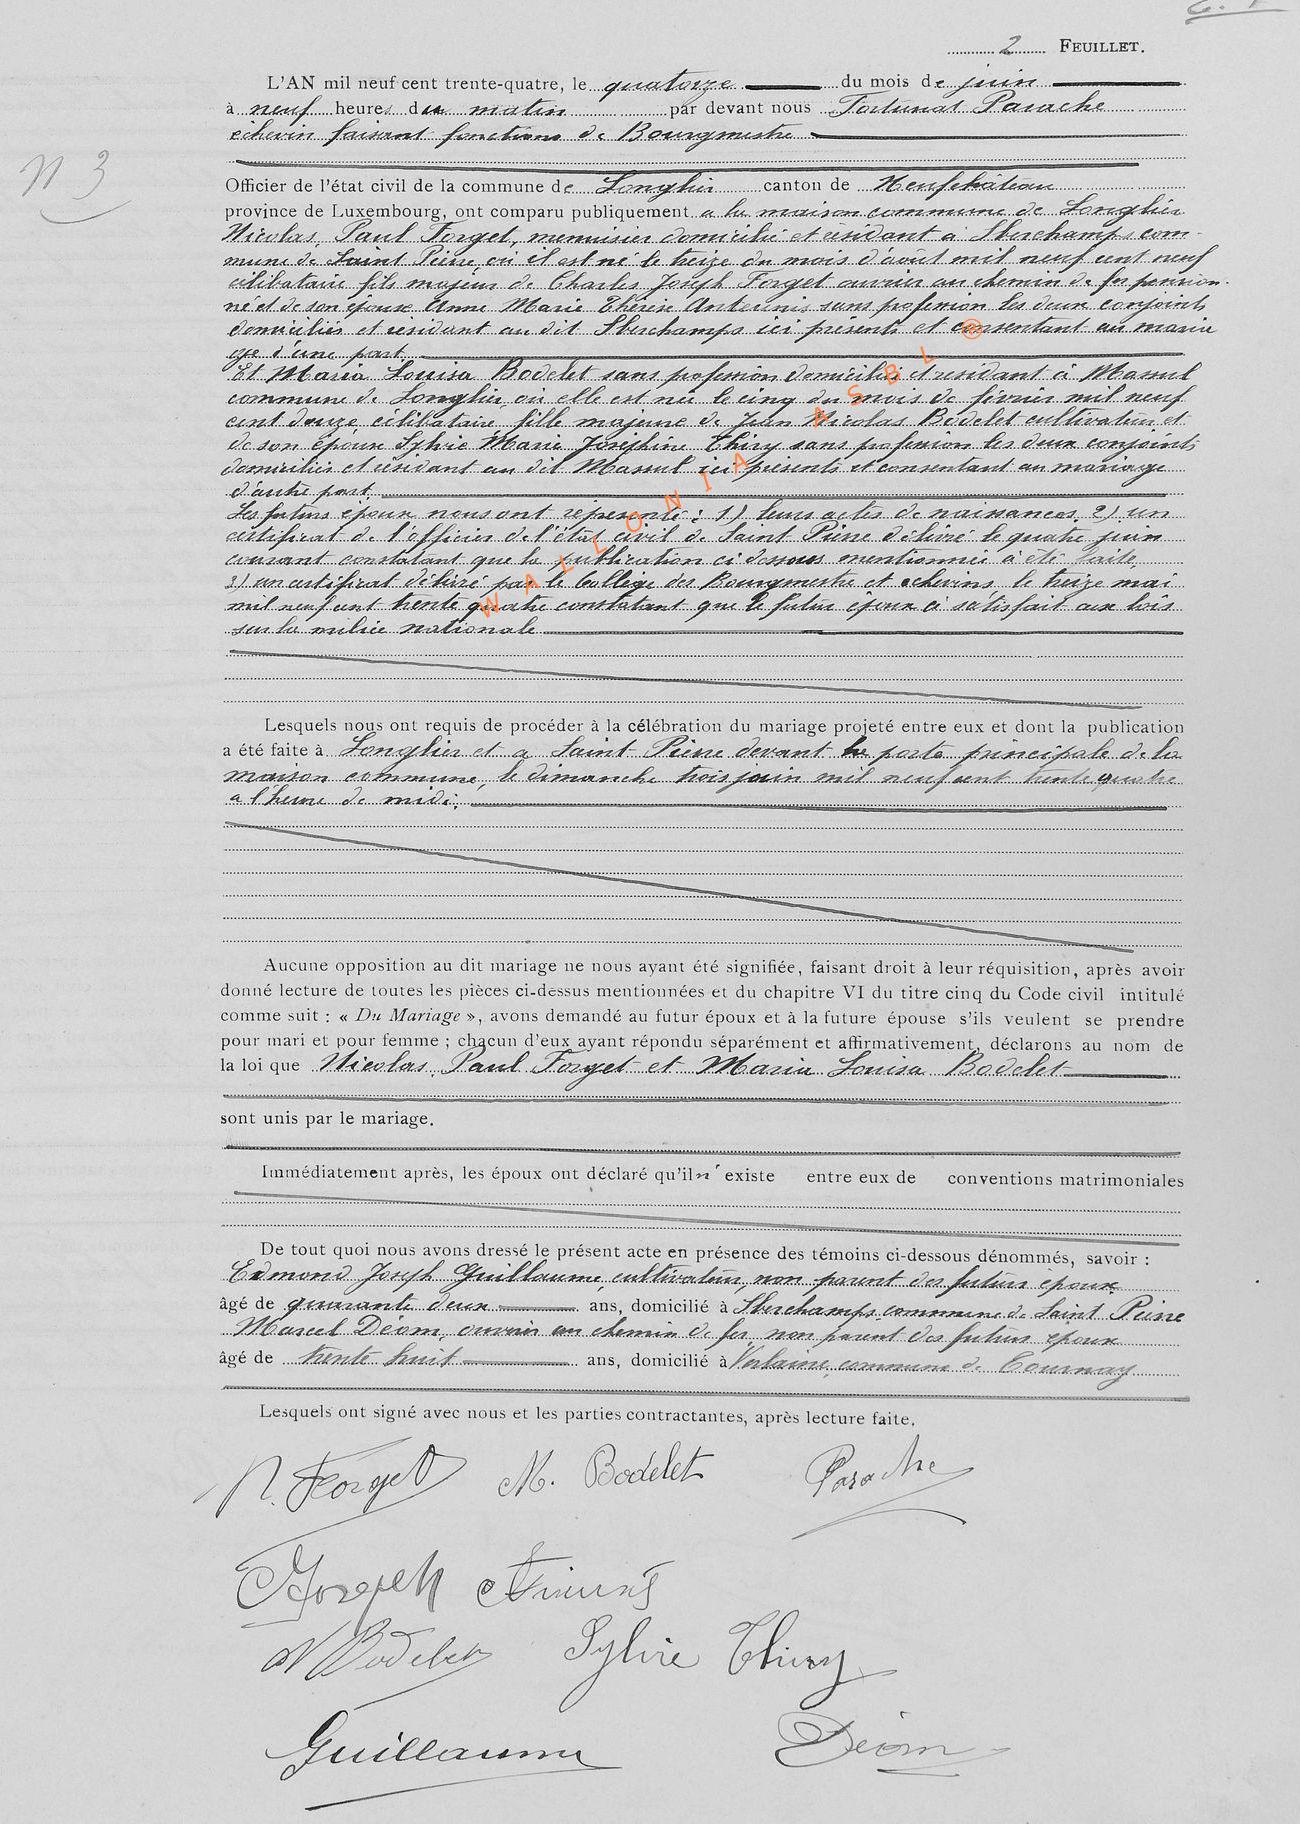 2 FEUILLET.
N 3
L'AN mil neuf cent trente-quatre, le quatorze du mois de juin
à neuf heures du matin par devant nous Fortunat Parache
échevin faisant fonctions de Bourgmestre
Officier de l'état civil de la commune de Longlier canton de Neufchâteau
province de Luxembourg, ont comparu publiquement a la maison commune de Longlier
Nicolas, Paul Forget, menuisier domicilié et résidant à Sberchamps com-
mune de Saint Pierre, où il est né le treize du mois d'août mil neuf cent neuf
célibataire fils majeur de Charles Joseph Forget ouvrier au chemin de fer pension-
né et de son épouse Anne Marie Thérèse sans profession les deux conjoints
domiciliés et résidant au dit Sberchamps ici présents et consentant au maria
ge d'une part
Et Maria Louisa Bodelet sans profession domiciliée et résidant à Massul
commune de Longlier, où elle est née le cinq du mois de février mil neuf
cent douze, célibataire, fille majeure de Jean Nicolas Bodelet cultivateur et
de son épouse Sylvie Marie Joséphine Thiry sans profession les deux conjoints
domiciliés et résidant au dit Massul ici présents et consentant au mariage
d'autre part.
Les futurs époux nous ont représenté : 1) leurs actes de naissances. 2) un
certificat de l'officier de l'état civil de Saint Pierre délivré le quatre juin
courant constatant que la publication ci dessous mentionnée à été faite,
3) un certificat délivré par le Collège des Bourgmestre et echevins, le treize mai
mil neuf cent trente quatre constatant que le futur époux à satisfait aux lois
sur la milice nationale
WALLONIA ASBL ®
Lesquels nous ont requis de procéder à la célébration du mariage projeté entre eux et dont la publication
a été faite à Longlier et a Saint Pierre devant la porte principale de la
maison commune, le dimanche trois juin mil neuf cent trente quatre
a l'heure de midi.
Aucune opposition au dit mariage ne nous ayant été signifiée, faisant droit à leur réquisition, après avoir
donné lecture de toutes les pièces ci-dessus mentionnées et du chapitre VI du titre cinq du Code civil intitulé
comme suit : « Du Mariage », avons demandé au futur époux et à la future épouse s'ils veulent se prendre
pour mari et pour femme ; chacun d'eux ayant répondu séparément et affirmativement, déclarons au nom de
la loi que Nicolas, Paul Forget et Maria Louisa Bodelet
sont unis par le mariage.
Immédiatement après, les époux ont déclaré qu'il n'existe entre eux de conventions matrimoniales
De tout quoi nous avons dressé le présent acte en présence des témoins ci-dessous dénommés, savoir :
Edmond Joseph Guillaume, cultivateur, non parent des futurs epoux
âgé de quarante deux ans, domicilié à Sberchamps commune de Saint Pierre
Marcel Déom, ouvrier au chemin de fer, non parent des futurs epoux
âgé de trente huit ans, domicilié à Verlaine, commune de Tournay
Lesquels ont signé avec nous et les parties contractantes, après lecture faite.
N. Forget M. Bodelet Parache
N Bodelet Sylvie Thiry
Guillaume Déom